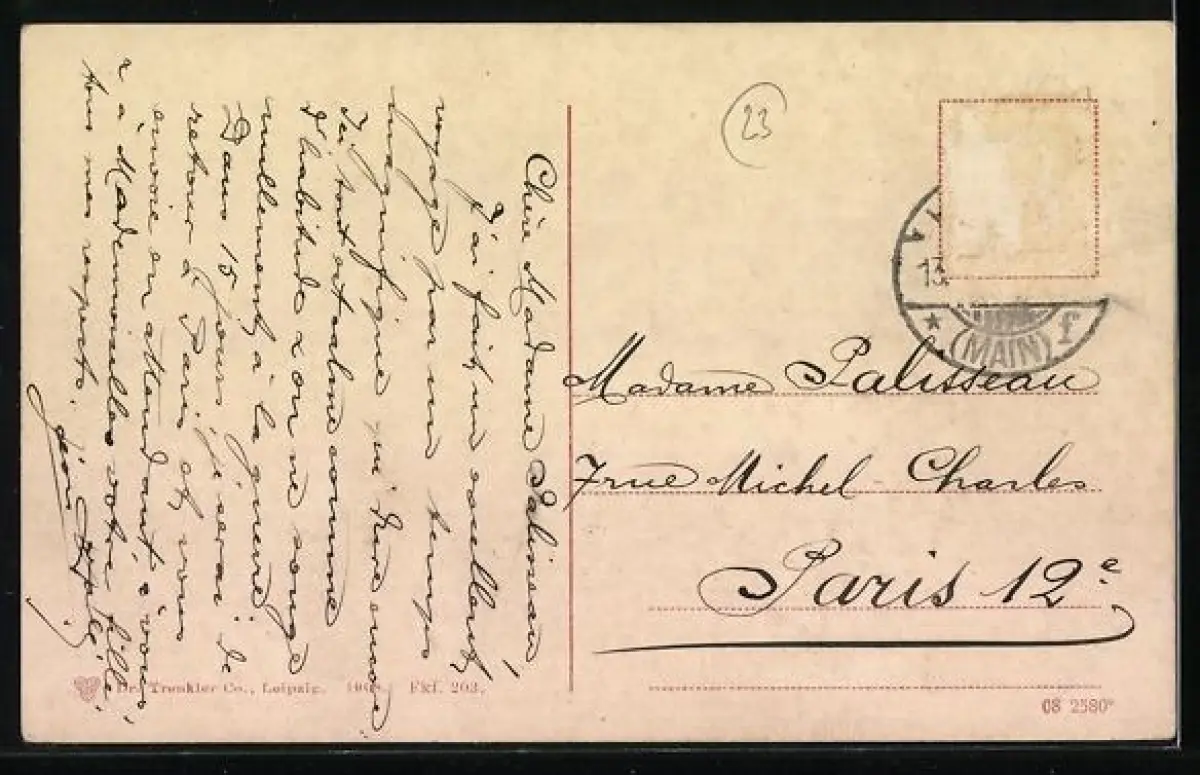 Chère Madame Palisseau,
J'ai fait un excellent
voyage par un temps
magnifique
Ici tout est calme comme
d'habitude & on ne songe
nullement à la guerre.
Dans 15 jours je serai de
retour à Paris et vous
envoie en attendant à vous
& à Mademoiselle votre fille
tous mes respects.
23
13
(MAIN) f
Madame Palisseau
7 rue Michel-Charles
Paris 12e
Dr. Trenkler Co., Leipzig. Fkf. 203.
08 2580*